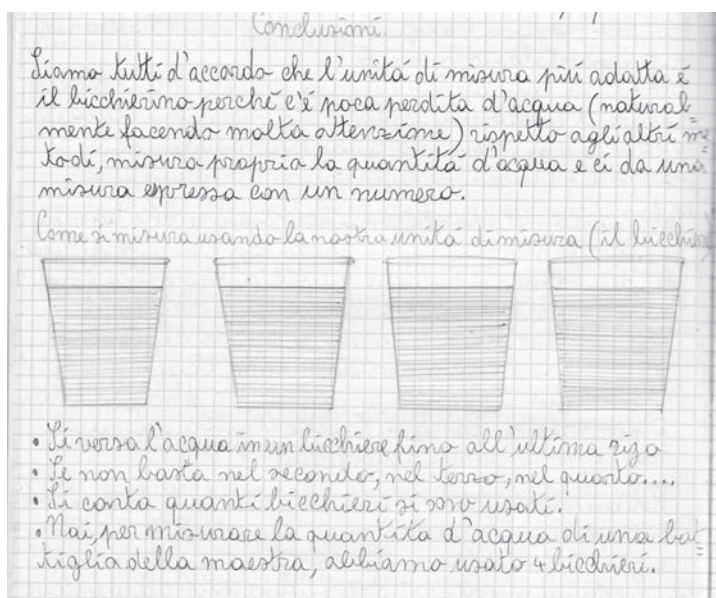 Conclusioni.
Siamo tutti d'accordo che l'unitá di misura piú adatta é
il bicchierino perché c'é poca perdita d'acqua (natural=
mente facendo molta attenzione) rispetto agli altri me=
todi, misura proprio la quantitá d'acqua e ci da una
misura espressa con un numero.
Come si misura usando la nostra unitá di misura (il bicchier
• Si versa l'acqua in un bicchiere fino all'ultima riga
• Se non basta nel secondo, nel terzo, nel quarto....
• Si conta quanti bicchieri si sono usati.
• Noi, per misurare la quantitá d'acqua di una bot=
tiglia della maestra, abbiamo usato 4 bicchieri.